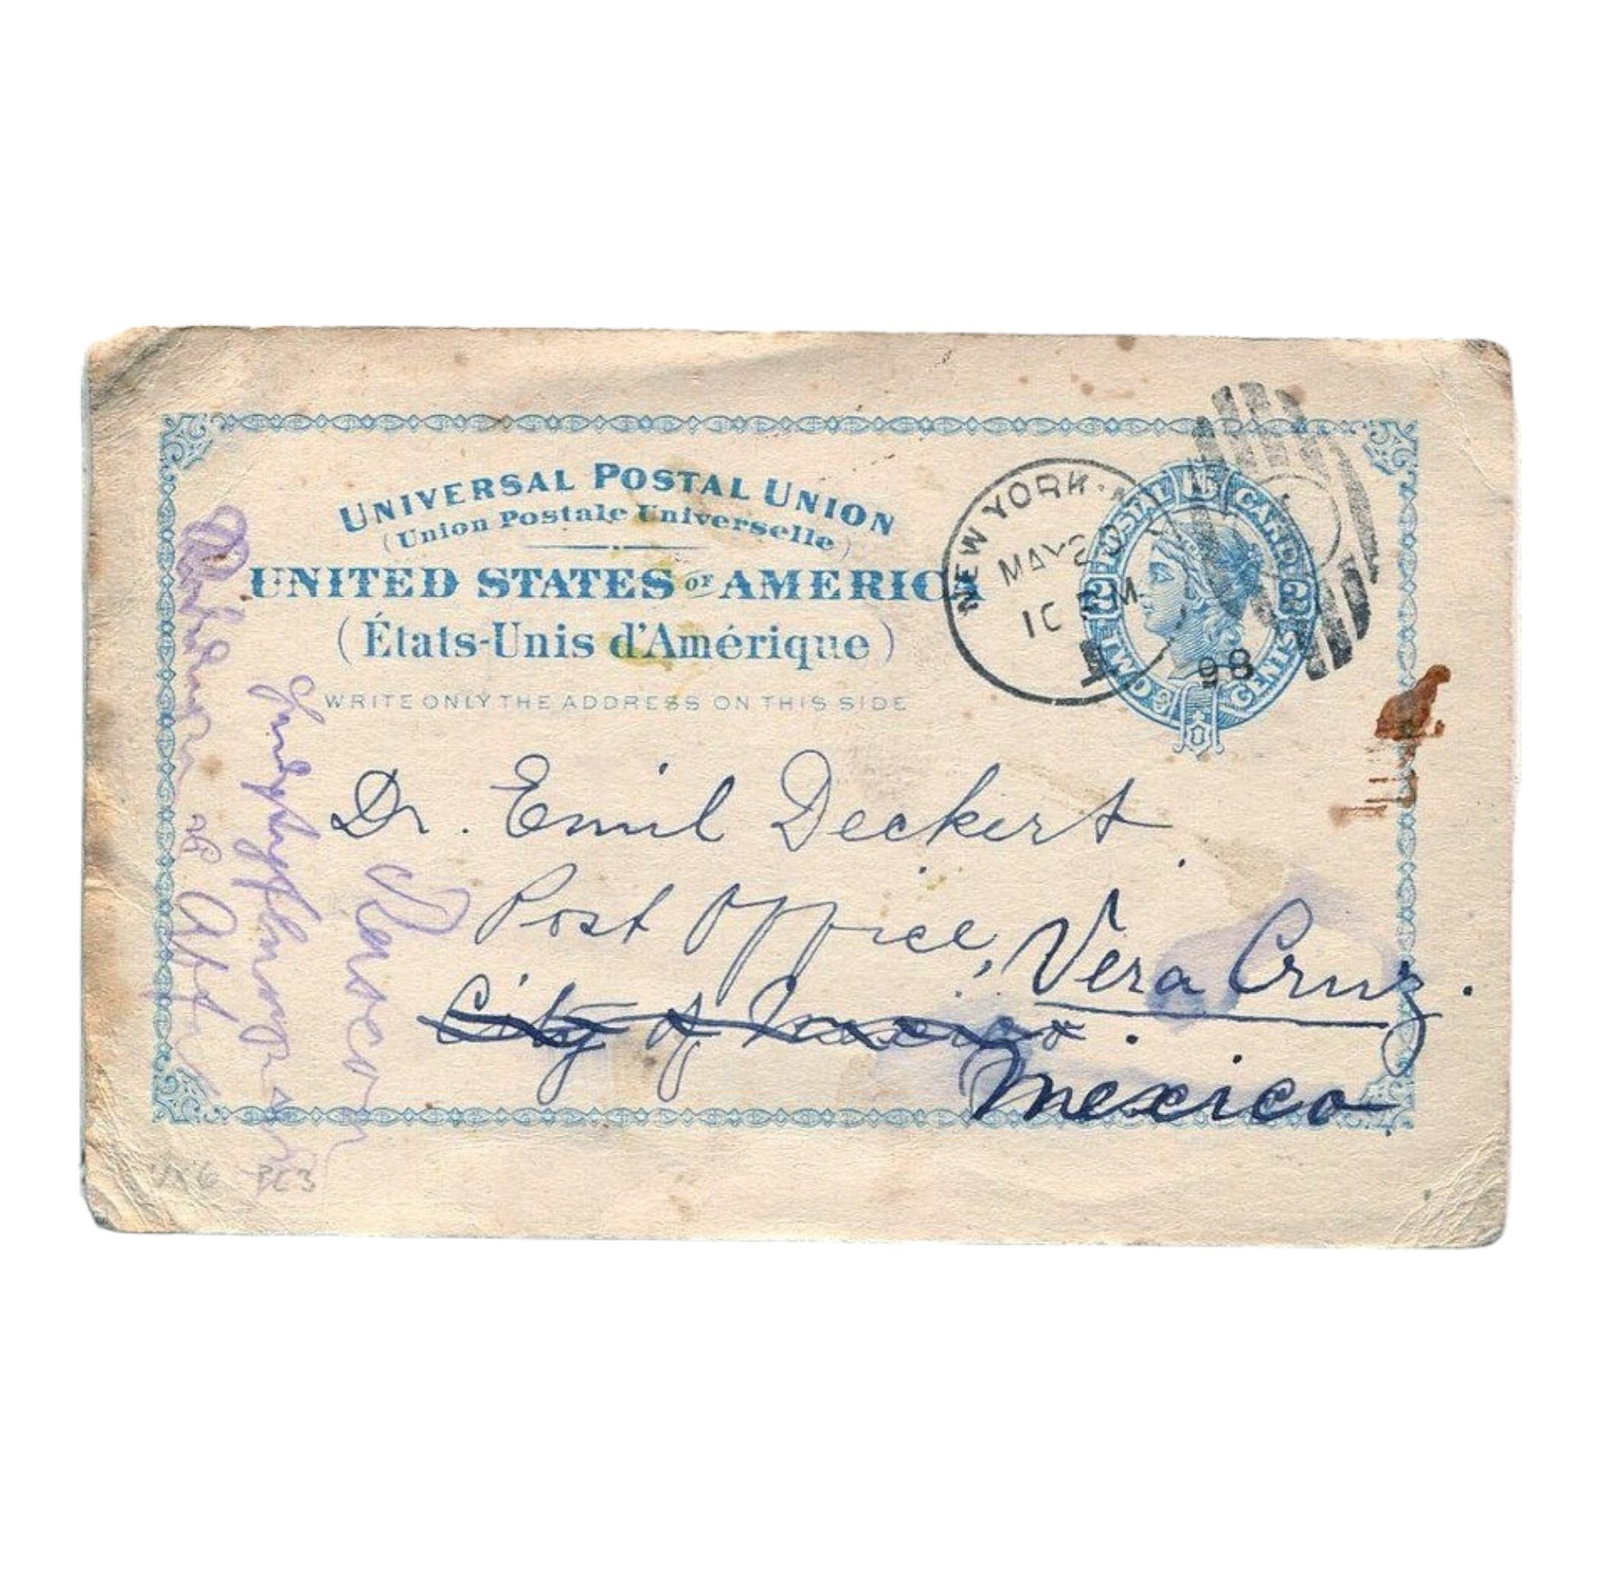 UNIVERSAL POSTAL UNION
(Union Postale Universelle)
UNITED STATES OF AMERICA
(États-Unis d'Amérique)
WRITE ONLY THE ADDRESS ON THIS SIDE
NEW YORK
MAY 2
98
POSTAL CARD
TWO CENTS
2 2
Dr. Emil Deckert
Post Office, Vera Cruz.
City of Mexico.
Mexico
UX6 PC3